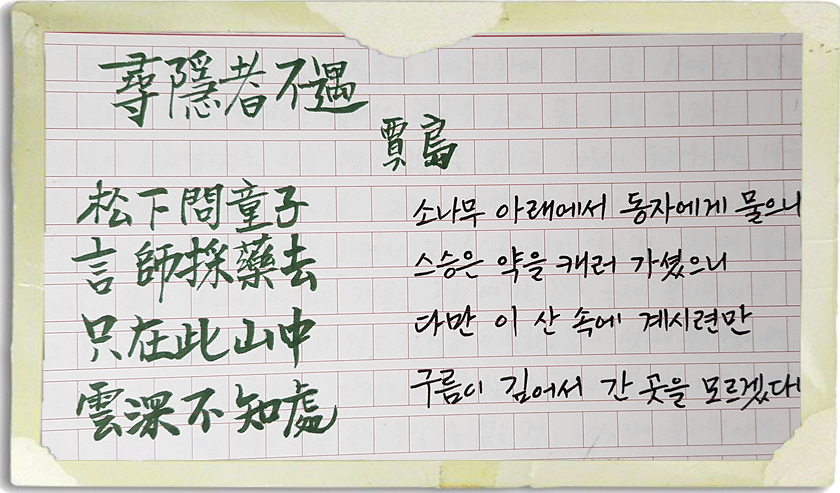 尋隱者不遇
賈島
松下問童子 소나무 아래에서 동자에게 물으니
言師採藥去 스승은 약을 캐러 가셨으니
只在此山中 다만 이 산 속에 계시련만
雲深不知處 구름이 깊어서 간 곳을 모르겠다네